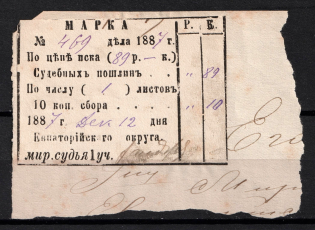 МАРКА Р. К.
№ 469 дѣла 1887 г.
По цѣнѣ иска (89 р.— к.)
Судебныхъ пошлинъ . „ 89
По числу ( 1 ) листовъ
10 коп. сбора . . . „ 10
1887 г. Дек 12 дня
Евпаторійскаго округа.
мир. судья 1 уч.
Его
Мир